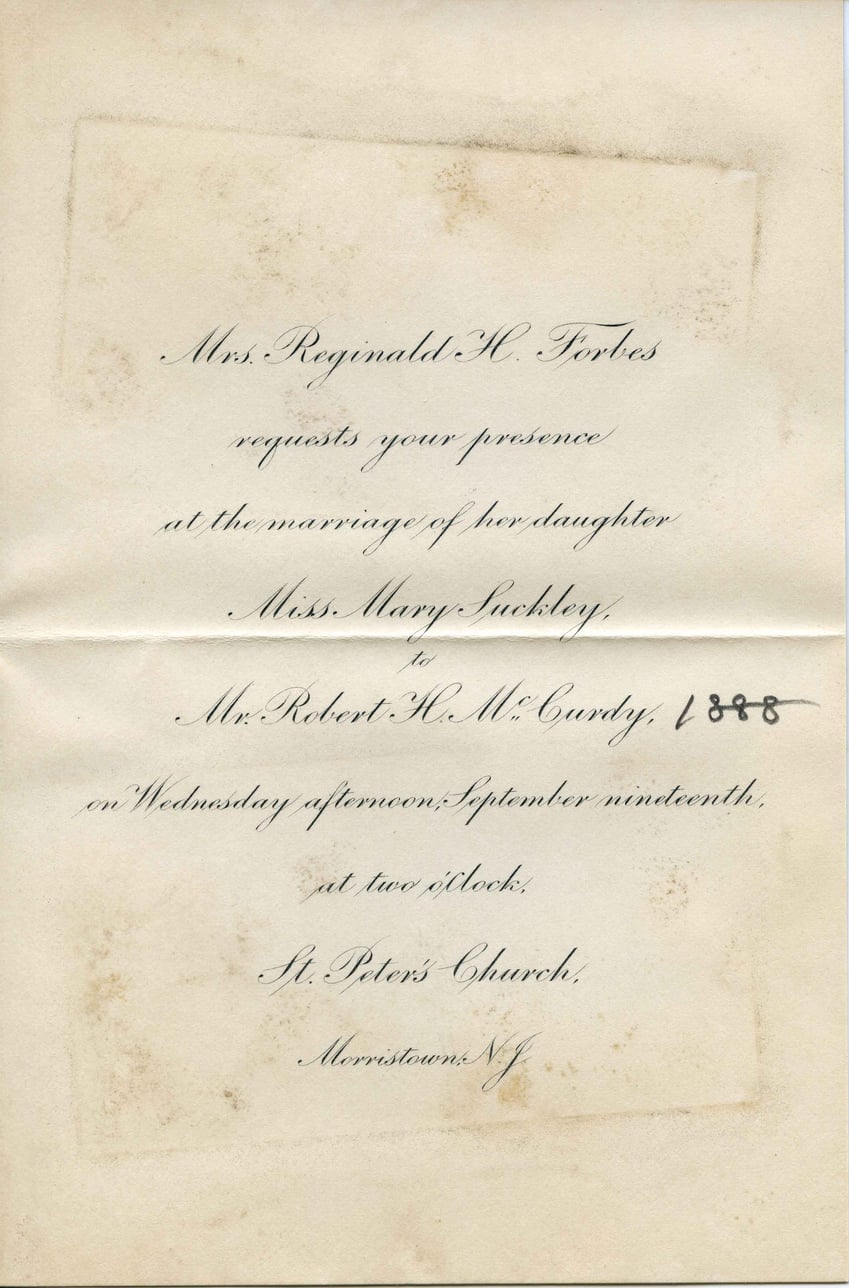 Mrs. Reginald H. Forbes
requests your presence
at the marriage of her daughter
Miss Mary Suckley,
to
Mr. Robert H. Mc Curdy, 1888
on Wednesday afternoon, September nineteenth,
at two o'Clock,
St. Peter's Church,
Morristown, N.J.